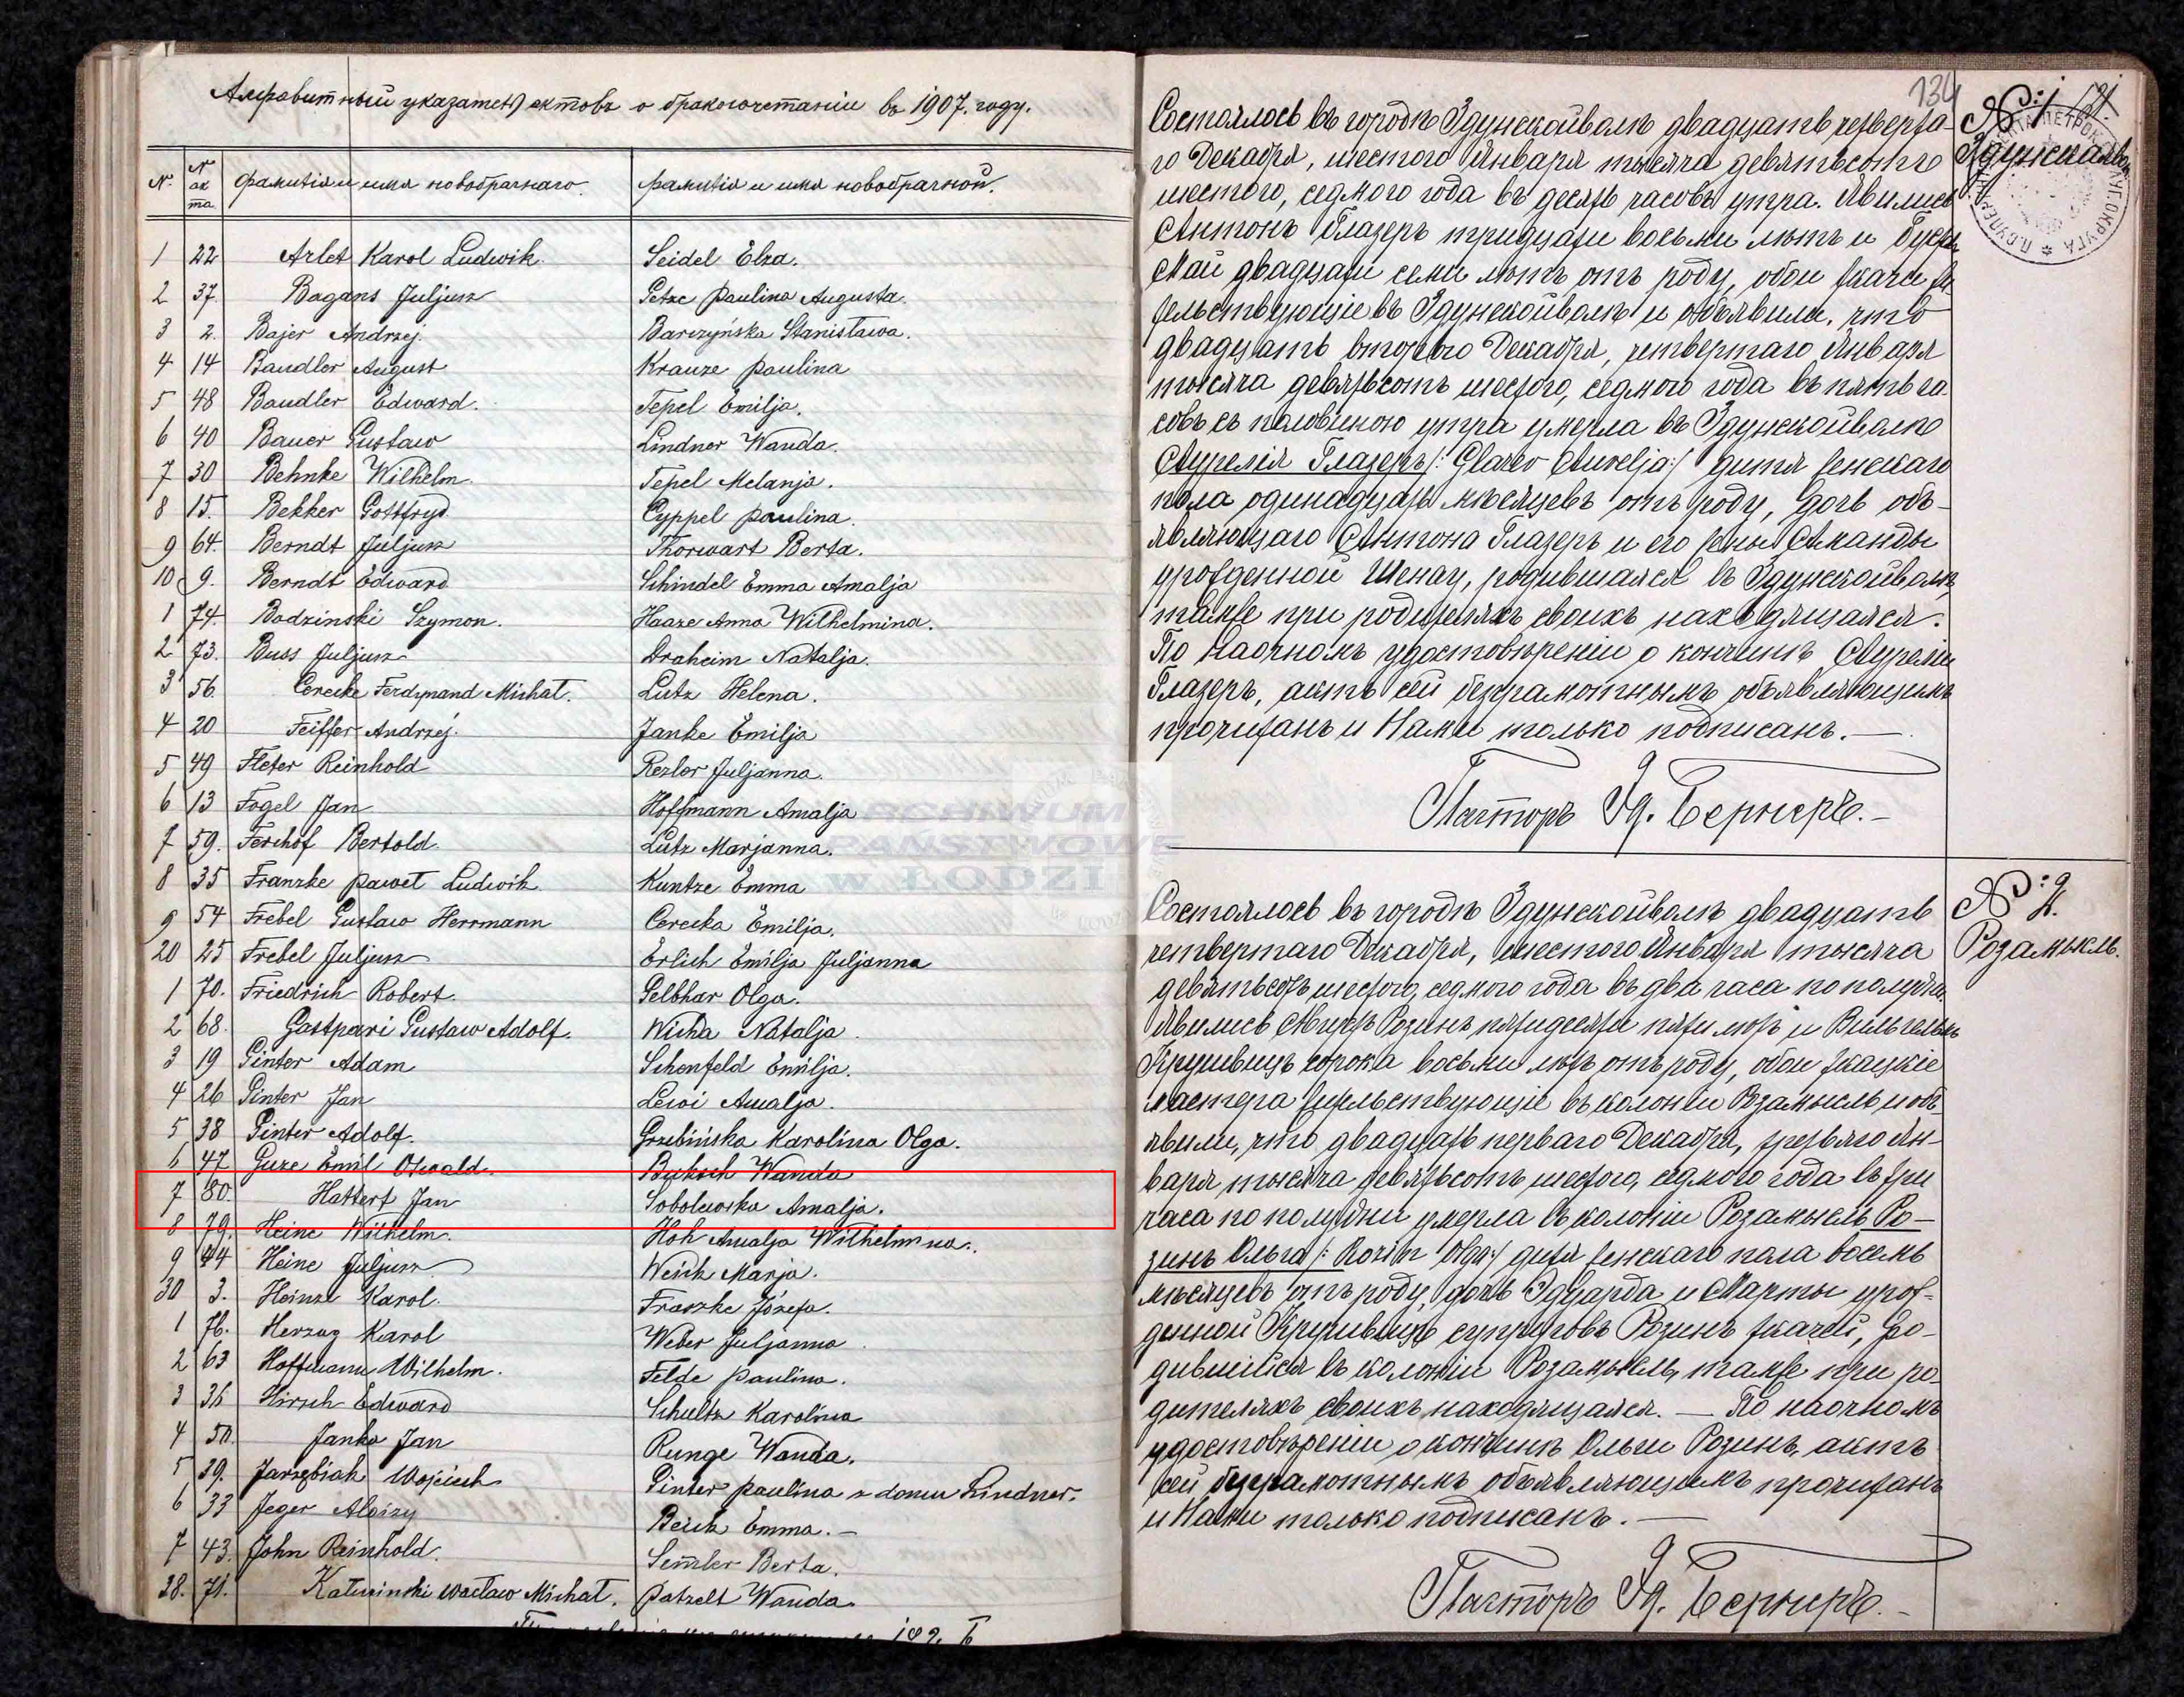 Алфавитный указатель актовъ о бракосочетаніи въ 1907. году.
№. № акта Фамилія и имя новобрачнаго. Фамилія и имя новобрачной.
1 22 Arlet Karol Ludwik. Seidel Elza.
2 37. Bagans Juljusz Petze Paulina Augusta.
3 2. Bajer Andrzej. Barczyńska Stanisława.
4 14 Baudler August Krauze Paulina
5 48 Baudler Edward. Tepel Emilja.
6 40 Bauer Gustaw Lindner Wanda.
7 30 Behnke Wilhelm. Tepel Melanja.
8 15. Bekker Gottfryd Cyppel Paulina.
9 64. Berndt Juljusz Thorwart Berta.
10 9. Berndt Edward Schindel Emma Amalja
1 74. Bodzinski Szymon. Haaze Anna Wilhelmina.
2 73. Buss Juljusz Draheim Natalja.
3 56. Cerecke Ferdynand Michał. Lutz Helena.
4 20 Feiffer Andrzej. Janke Emilja
5 49 Fleter Reinhold Rezler Juljanna.
6 13 Fogel Jan Hoffmann Amalja
7 59. Ferchof Bertold. Lutz Marjanna.
8 35 Franzke Paweł Ludwik Kuntze Emma
9 54 Frebel Gustaw Herrmann Cerecka Emilja.
20 25 Frebel Juljusz Erlich Emilja Juljanna
1 70. Friedrich Robert. Gelbhar Olga.
2 68. Gastpari Gustaw Adolf. Wicha Natalja.
3 19 Ginter Adam Schenfeld Emilja.
4 26 Ginter Jan Lewi Amalja.
5 38 Ginter Adolf. Grzebińska Karolina Olga.
6 47 Guze Emil Oswald. Buksch Wanda
7 80. Hattert Jan Sobolewska Amalja.
8 79. Heine Wilhelm. Hoh Amalja Wilhelmina.
9 44 Heine Juljusz Weick Marja.
30 3. Heinze Karol. Fraszke Józefa.
1 76. Herzog Karol Weber Juljanna
2 63 Hoffmann Wilhelm. Felde Paulina.
3 36 Hirsch Edward Schultz Karolina
4 50. Janke Jan Runge Wanda.
5 39. Jarzębiak Wojciech Ginter Paulina z domu Lindner.
6 33 Jeger Aloizy Emma.
7 43. John Reinhold. Semler Berta.
38. 71. Wacław Michał. Patzelt Wanda.
ARCHIWUM
PAŃSTWOWE
W ŁODZI
134
№: 1
Здунскаявол
Состоялось въ городѣ Здунскойволѣ двадцать четверта-
го Декабря, шестого Января тысяча девятьсотъ
шестого, седмого года въ десять часовъ утра. Явились
Антонъ Глазеръ тридцати восьми лѣтъ и
Май двадцати семи лѣтъ отъ роду, обои ткачи жи-
тельствующіе въ Здунскойволѣ и объявили, что
двадцать второго Декабря, четвертаго Января
тысяча девятьсотъ шестого, седмого года въ пять ча-
совъ съ половиною утра умерла въ Здунскойволѣ
Аурелія Глазеръ /: Glazer Aurelja :/ дитя женскаго
пола одинадцать мѣсяцевъ отъ роду, дочь объ-
являющаго Антона Глазеръ и его жены Аманды
урожденной Шенау, родившаяся въ Здунскойволѣ,
тамже при родителяхъ своихъ находящаяся.
По наочномъ удостовѣреніи о кончинѣ Ауреліи
Глазеръ, актъ сей безграмотнымъ объявляющимъ
прочитанъ и Нами только подписанъ. —
Пасторъ Эд. Бернеръ. —
№: 2.
Розамысль.
Состоялось въ городѣ Здунскойволѣ двадцать
четвертаго Декабря, шестого Января тысяча
девятьсотъ шестого, седмого года въ два часа по полудни.
Явились Августъ Розинъ пятидесяти пяти лѣтъ и Вильгельмъ
Крушвицъ сорока восьми лѣтъ отъ роду, обои ткацкіе
мастера жительствующіе въ колоніи Розамысль и объ-
явили, что двадцать перваго Декабря, третьяго Ян-
варя, тысяча девятьсотъ шестого, седмого года въ три
часа по полудни умерла въ колоніи Розамысль Ро-
зинъ Ольга /: Rozin Olga :/ дитя женскаго пола восемь
мѣсяцевъ отъ роду, дочь Эдуарда и Марты урож-
денной Крушвицъ супруговъ Розинъ ткачей, ро-
дившаяся въ колоніи Розамысль, тамже при ро-
дителяхъ своихъ находящаяся. — По наочномъ
удостовѣреніи о кончинѣ Ольги Розинъ, актъ
сей безграмотнымъ объявляющимъ прочитанъ
и Нами только подписанъ. —
Пасторъ Эд. Бернеръ. —